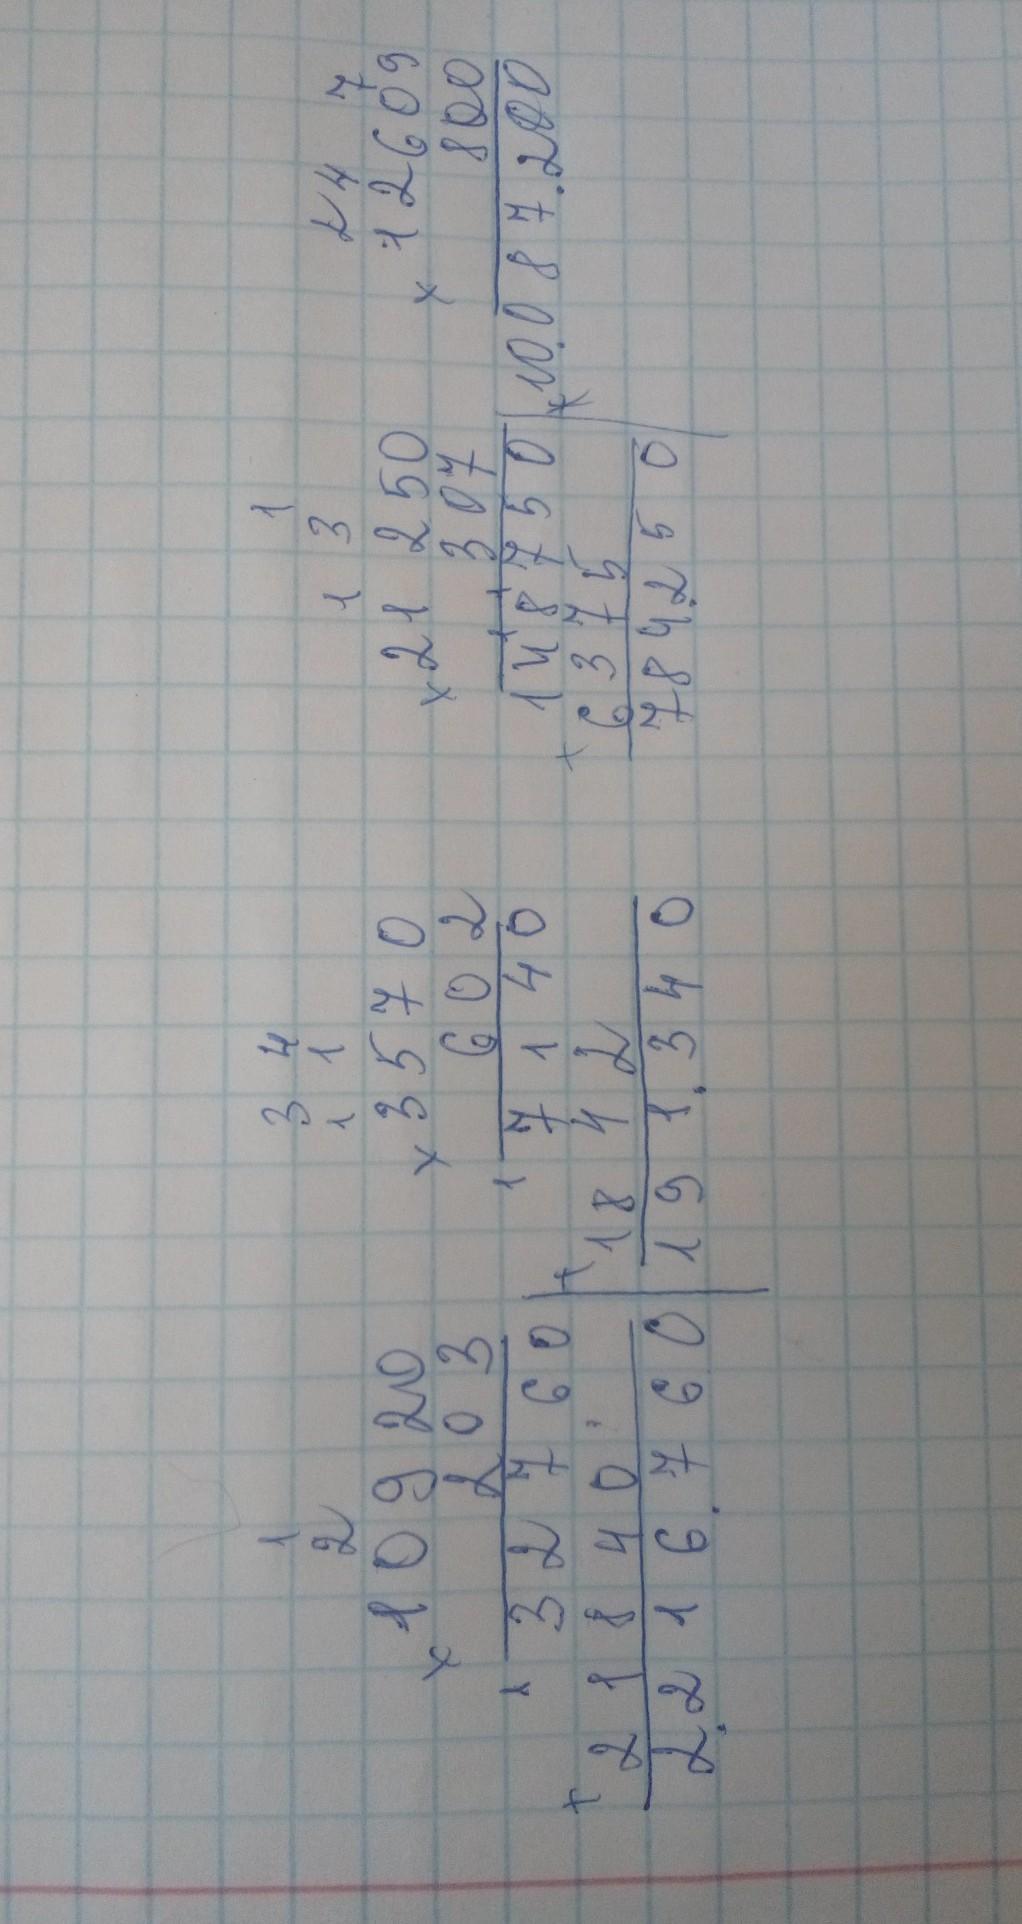 1
2
10920
× 203
1
32760
+ 21840
2.216.760
3 4
1 1
3570
× 602
1
7140
+ 1842
191.340
1
1 3
21250
× 307
1 1
148750
+ 6375
784.250
1 4 7
12609
× 800
10.087.200